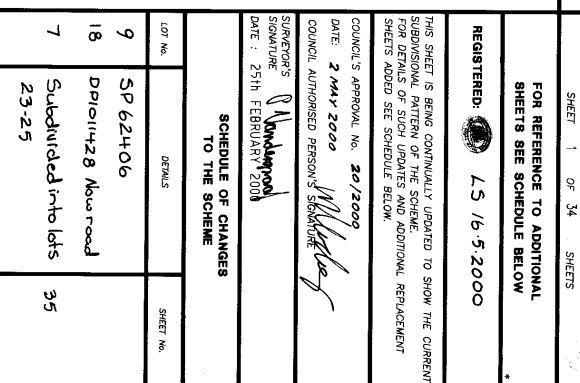 SHEET 1 OF 34 SHEETS
FOR REFERENCE TO ADDITIONAL
SHEETS SEE SCHEDULE BELOW
*
REGISTERED: LS 16.5.2000
THIS SHEET IS BEING CONTINUALLY UPDATED TO SHOW THE CURRENT
SUBDIVISIONAL PATTERN OF THE SCHEME.
FOR DETAILS OF SUCH UPDATES AND ADDITIONAL REPLACEMENT
SHEETS ADDED SEE SCHEDULE BELOW.
COUNCIL'S APPROVAL No. 20/2000
DATE: 2 MAY 2000
COUNCIL AUTHORISED PERSON'S SIGNATURE
SURVEYOR'S
SIGNATURE
DATE : 25th FEBRUARY 2000
SCHEDULE OF CHANGES
TO THE SCHEME
LOT No. DETAILS SHEET No.
9 SP62406
18 DP1011428 Now road
7 Subdivided into lots 35
23-25